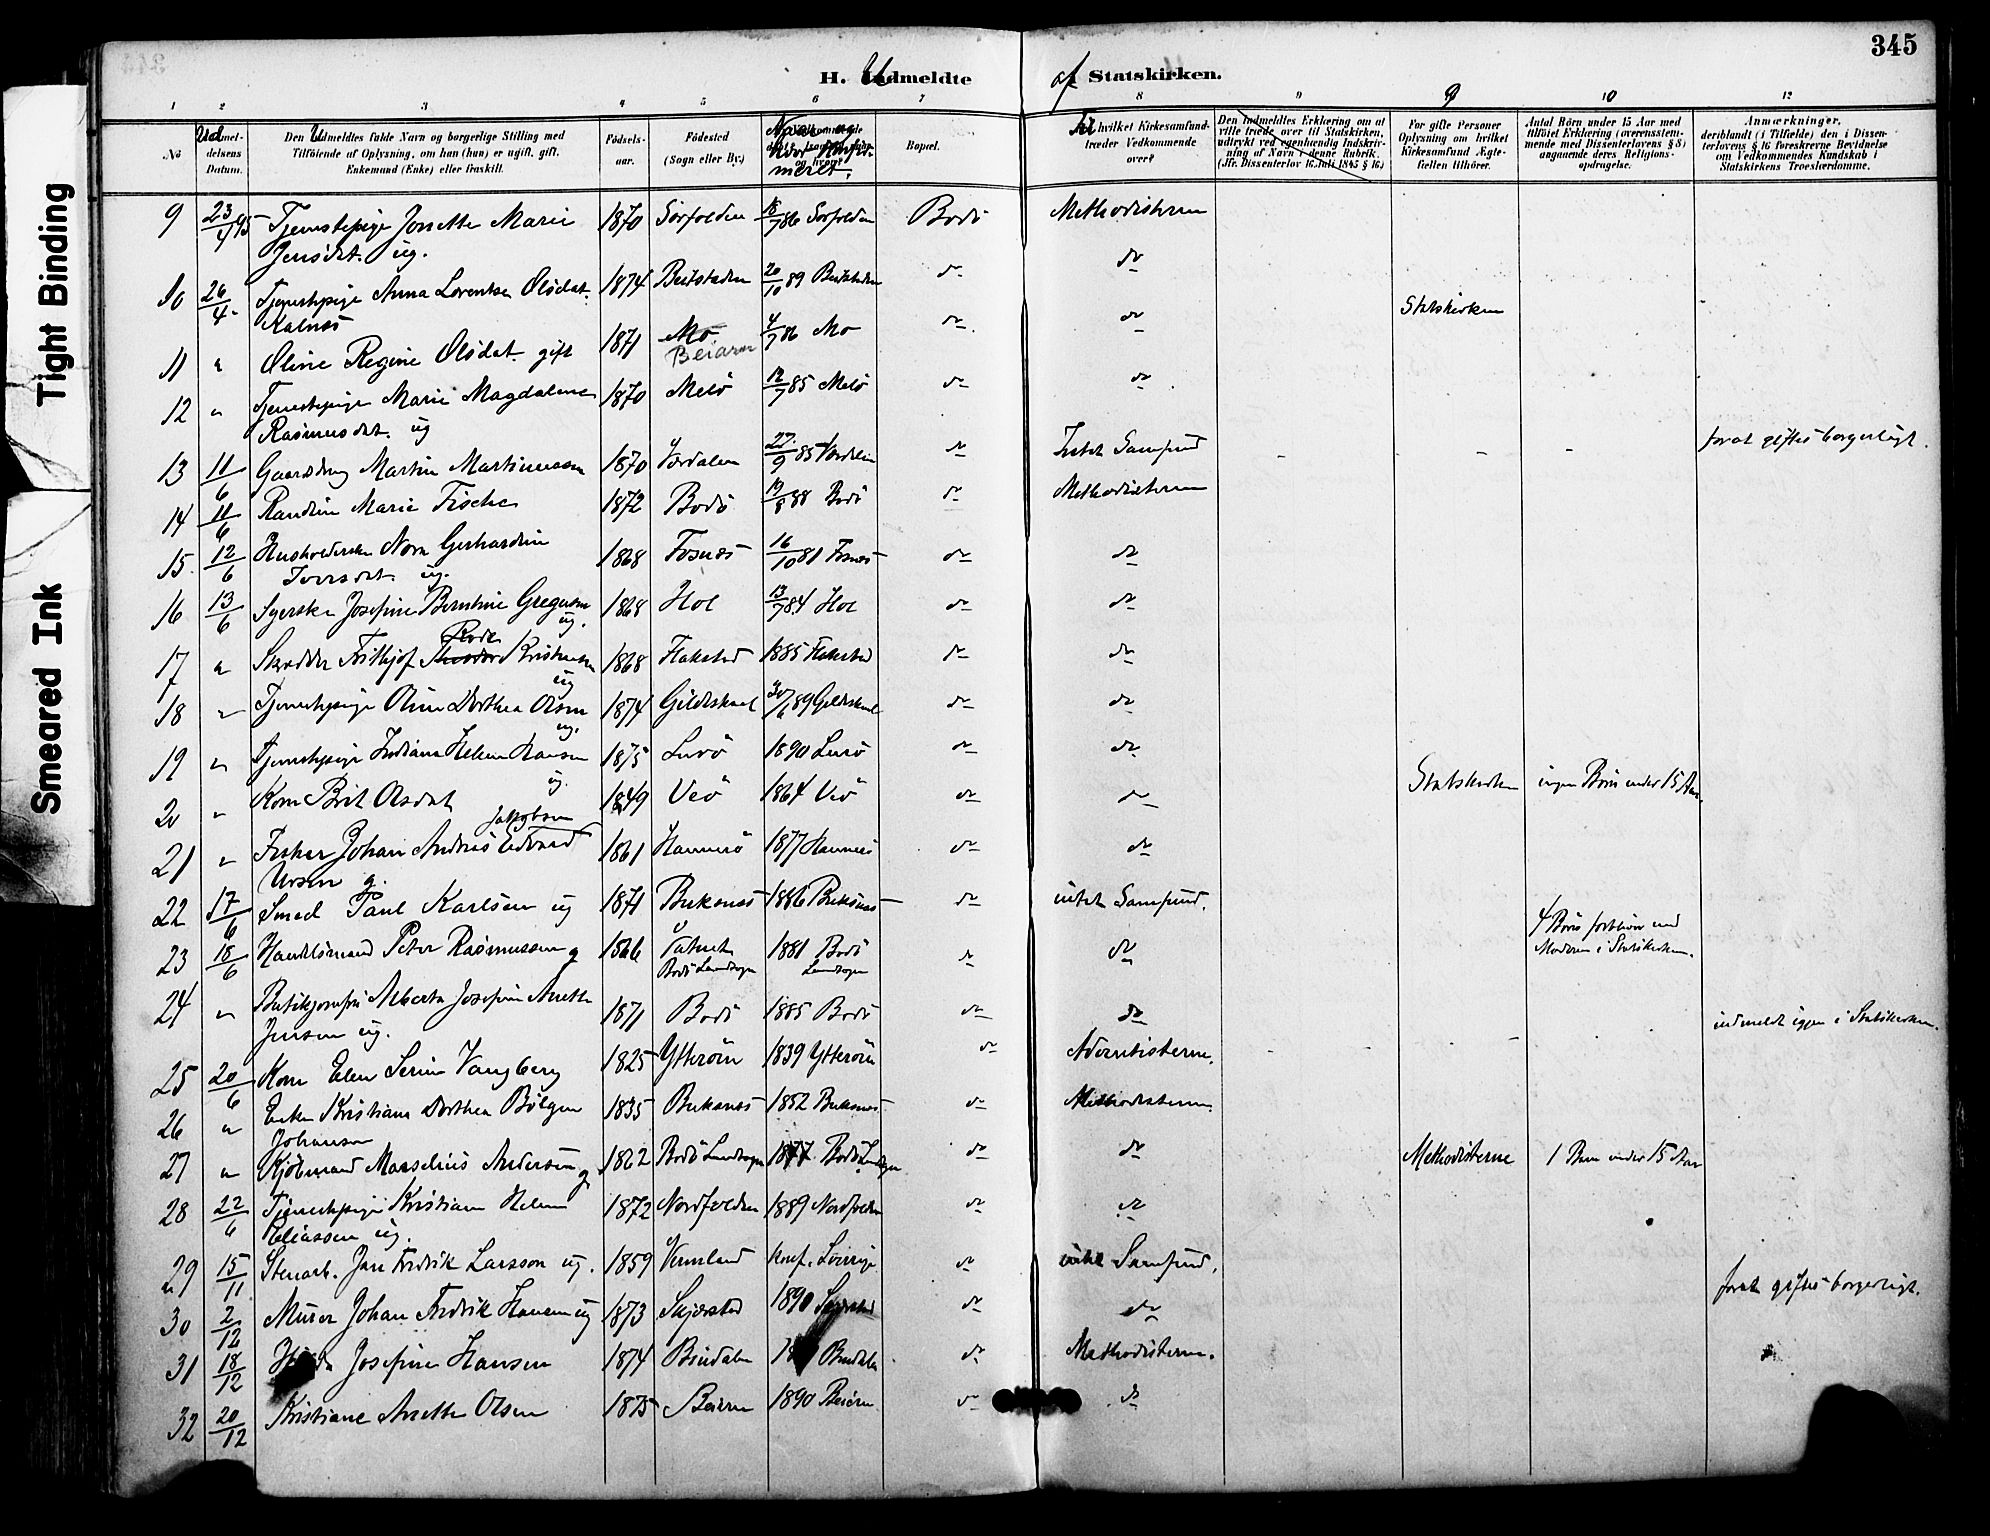 345
H. Udmeldte af Statskirken.
1 2 3 4 5 6 7 8 9 9 10 12
No
Udmel-
delsens
Datum.
Den Udmeldtes fulde Navn og borgerlige Stilling med
Tilföiende af Oplysning, om han (hun) er ugift, gift,
Enkemand (Enke) eller fraskilt.
Födsels-
aar.
Födested
(Sogn eller By.)
Naar og
hvor konfir-
meret.
Bopæl.
Til hvilket Kirkesamfund
træder Vedkommende
over?
Den Indmeldtes Erklæring om at
ville træde over til Statskirken,
udtrykt ved egenhændig Indskriv-
ning af Navn i denne Rubrik.
(Jfr. Dissenterlov 16 Juli 1845 § 16.)
For gifte Personer
Oplysning om hvilket
Kirkesamfund Ægte-
fællen tilhörer.
Antal Börn under 15 Aar med
tilföiet Erklæring (overensstem-
mende med Dissenterlovens § 8)
angaaende deres Religions-
opdragelse.
Anmærkninger,
deriblandt (i Tilfælde) den i Dissen-
terlovens § 16 foreskrevne Bevidnelse
om Vedkommendes Kundskab i
Statskirkens Troeslærdomme.
9 23/4 95 Tjenestepige Jonette Marie 1870 Sörfolden 18/7 86 Sörfolden Bodö Methodisterne
Jensdat. ug.
10 26/4 Tjenestepige Anna Lorentse Olsdat. 1874 Beitstaden 20/10 89 Beitstaden do do
Kalnæs
11 " Oline Regine Olsdat. gift 1871 Mo 4/7 86 Mo do do Statskirken
Beiarn
12 " Tjenestepige Marie Magdalena 1870 Melö 12/7 85 Melö do do
Rasmusdat. ug
13 11/6 Gaardsdreng Martin Martinussen 1870 Værdalen 27/9 85 Værdalen do Intet Samfund - - - forat giftes borgerligt.
14 11/6 Randine Marie Fischer 1872 Bodö 19/8 88 Bodö do Methodisterne
15. 12/6 Husholderske Nora Gerhardine 1868 Fosnæs 16/10 81 Fosnæs do do
Iversdat. ug.
16 13/6 Syerske Josefine Berntine Gregersen 1868 Hol 13/7 84 Hol do do
ug.
17 " Skrædder Frithjof Theodor Kristensen 1868 Flakstad 1885 Flakstad do do
ug
18 " Tjenestepige Oline Dorthea Olsen 1874 Gildeskaal 30/6 89 Gildeskaal do do
ug.
19 " Tjenestepige Indiana Helene Hansen 1875 Lurö 1890 Lurö do do
ug.
20 " Kone Brit Olsdat 1849 Veö 1864 Veö do do Statskirken ingen Börn under 15 Aar.
Jakobsen
21 " Fisker Johan Andreas Edvard 1861 Hammerö 1877 Hammerö do do
g.
22 17/6 Smed Paul Karlsen ug 1871 Buksnæs 1886 Buksnæs do intet Samfund.
23 18/6 Handelsmand Peter Rasmussen g 1856 Vatnet 1881 Bodö do do 4 Börn forbliver med
Bodö Landsogn Landsogn Moderen i Statskirken.
24 " Butikjomfru Alberta Josefine Anette 1871 Bodö 1885 Bodö do do indmeldt igjen i Statskirken.
Jensen ug.
25 20/6 Kone Elen Serine Vangberg 1825 Ytteröen 1839 Ytteröen do Adventisterne. - -
26 " Enke Kristiana Dorthea Bölgen 1835 Buksnæs 1852 Buksnæs do Methodisterne.
Johansen
27 " Kjöbmand Marselius Andersen g 1862 Bodö Landsogn 1877 Bodö Landsogn do do Methodisterne 1 Barn under 15 Aar
28 22/6 Tjenestepige Kristiane Helene 1872 Nordfolden 1889 Nordfolden do do
Eliassen ug.
29 15/11 Stenarb. Jan Fredrik Larsson ug. 1859 Vermland konf. Sverrige do intet Samfund. forat giftes borgerligt.
30 2/12 Murer Johan Fredrik Hansen ug 1873 Skjærstad 1890 Skjærstad do do
31 18/12 Josefine Hansen 1874 Bindalen Bindalen do Methodisterne.
32 20/12 Kristiane Anette Olsen 1875 Beiern 1890 Beiern do do
Tight Binding
Smeared Ink